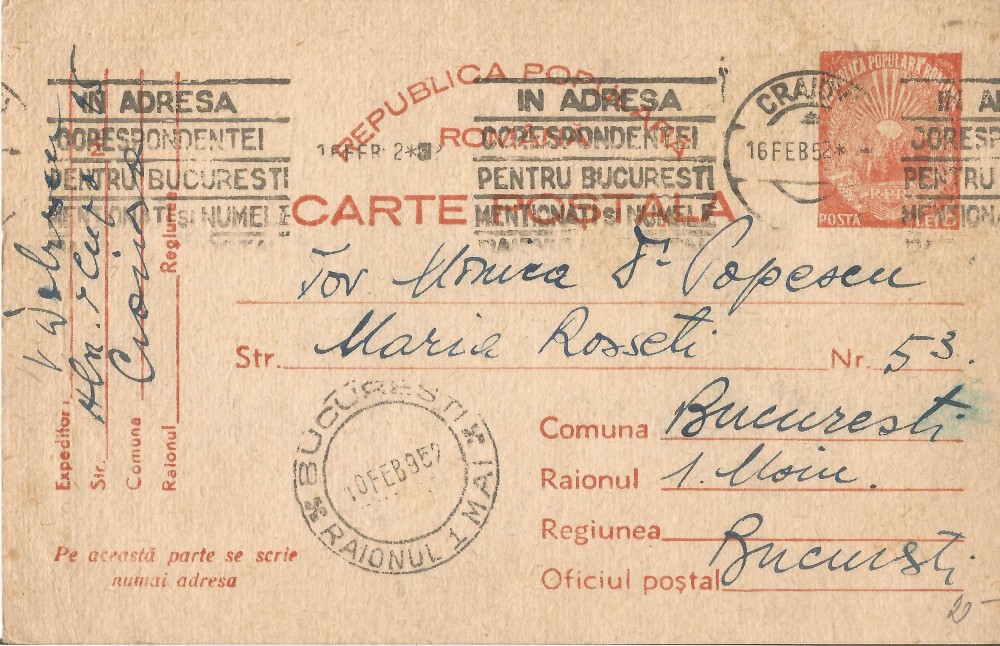 REPUBLICA POPULARA
ROMÂNĂ
CARTE POȘTALĂ
IN ADRESA
CORESPONDENTEI
PENTRU BUCURESTI
MENTIONATI SI NUMELE
IN ADRESA
CORESPONDENTEI
PENTRU BUCURESTI
MENTIONATI SI NUMELE
16 FEB 52
CRAIOVA
16 FEB 52
IN A
CORESP
PENTRU
MENTIONA
REPUBLICA POPULARA ROMÂNA
R.P.R.
POSTA
LEI 5
Tov Monica Popescu
Str. Maria Rosseti Nr. 53.
Comuna Bucuresti
Raionul 1. Main.
Regiunea
Oficiul poștal Bucuresti
BUCURESTI
RAIONUL 1 MAI
10 FEB 952
Expeditor: V Dobrescu
Str.
Comuna Craiova
Raionul Regiunea
Pe această parte se scrie
numai adresa
20-